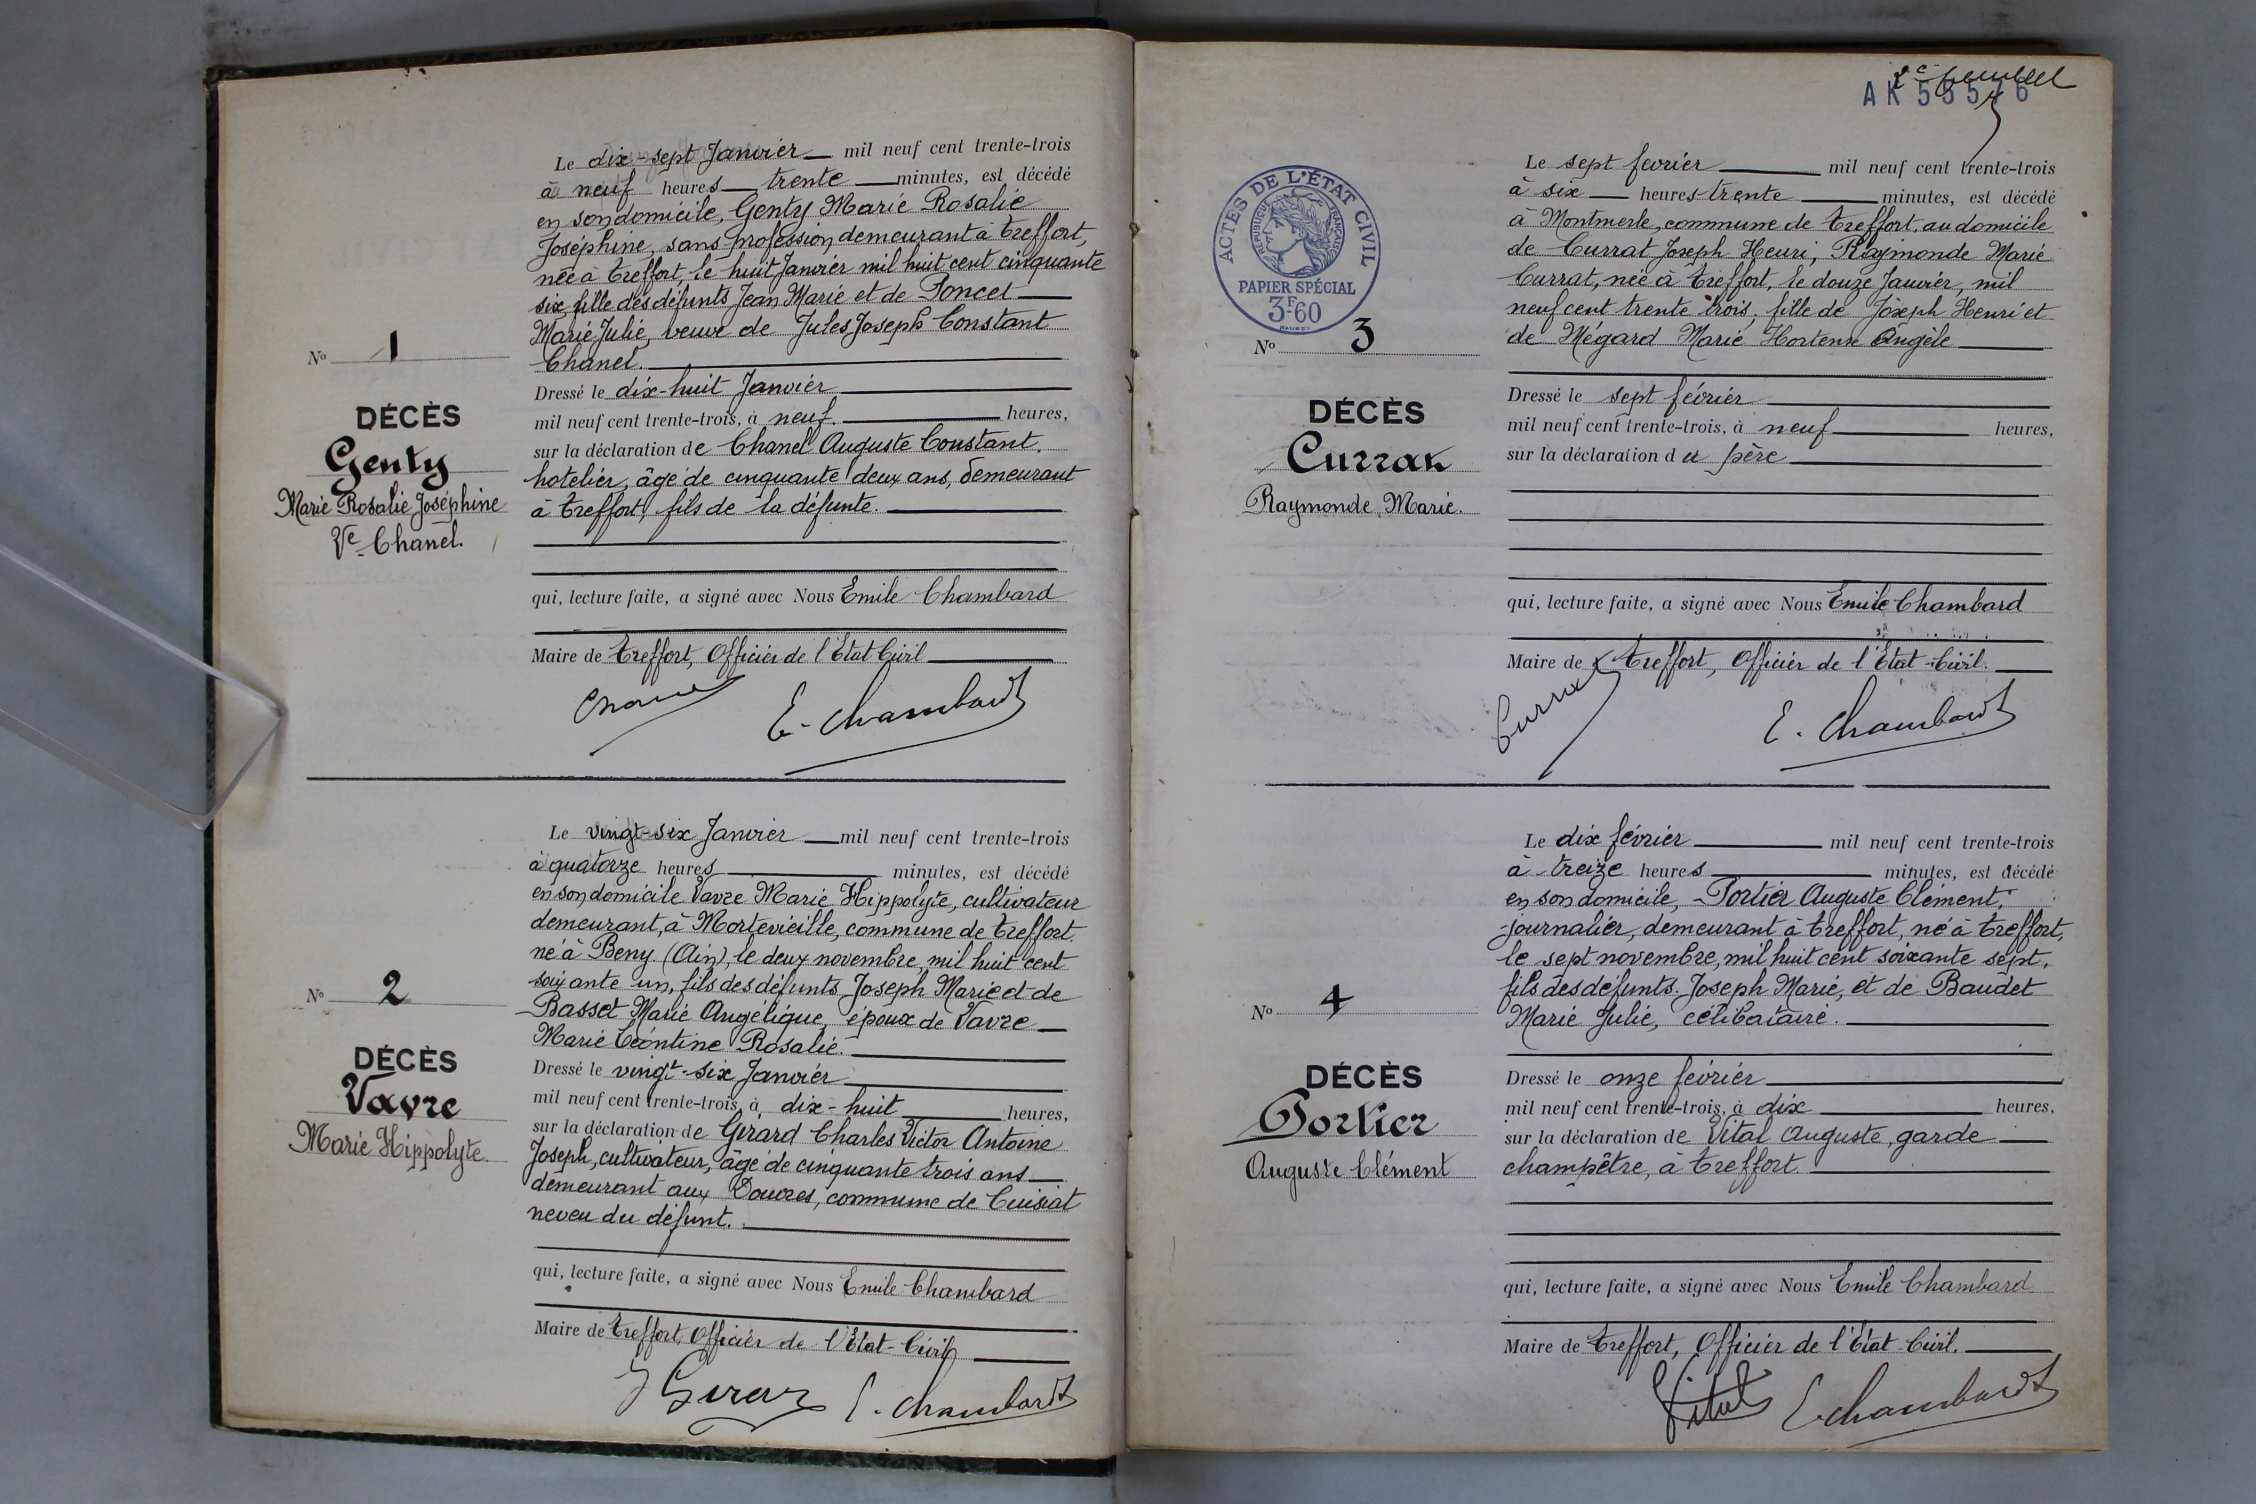 Le dix-sept Janvier mil neuf cent trente-trois
à neuf heures trente minutes, est décédé
en son domicile, Genty Marie Rosalie
Joséphine, sans profession, demeurant à Treffort,
née à Treffort, le huit Janvier mil huit cent cinquante
six, fille des défunts Jean Marie et de Poncet
Marie Julie, veuve de Jules Joseph Constant
Chanel.
Nº 1
DÉCÈS
Genty
Marie Rosalie Joséphine
Ve Chanel.
Dressé le dix-huit Janvier
mil neuf cent trente-trois, à neuf. heures,
sur la déclaration de Chanel Auguste Constant.
hotelier, âgé de cinquante deux ans, demeurant
à Treffort, fils de la défunte.
qui, lecture faite, a signé avec Nous Emile Chambard
Maire de Treffort, Officier de l'Etat Civil
E. Chambard
Le vingt-six Janvier mil neuf cent trente-trois
à quatorze heures minutes, est décédé
en son domicile Vavre Marie Hippolyte, cultivateur
demeurant, à Mortevieille, commune de Treffort.
né à Beny (Ain), le deux novembre, mil huit cent
soixante un, fils des défunts Joseph Marie et de
Basset Marie Angélique, époux de Vavre
Marie Léontine Rosalie.
Nº 2
DÉCÈS
Vavre
Marie Hippolyte
Dressé le vingt-six Janvier
mil neuf cent trente-trois, à dix-huit heures,
sur la déclaration de Girard Charles Victor Antoine
Joseph, cultivateur, âgé de cinquante trois ans
demeurant aux Douvres, commune de Cuisiat
neveu du défunt.
qui, lecture faite, a signé avec Nous Emile Chambard
Maire de Treffort, Officier de l'Etat-Civil
E. Chambard
AK 53576
ACTES DE L'ÉTAT CIVIL
RÉPUBLIQUE FRANÇAISE
PAPIER SPÉCIAL
3F60
Le sept fevrier mil neuf cent trente-trois
à six heures trente minutes, est décédé
à Montmerle, commune de Treffort, au domicile
de Currat Joseph Henri, Raymonde Marie
Currat, née à Treffort, le douze Janvier, mil
neuf cent trente trois, fille de Joseph Henri et
de Mégard Marie Hortense Angèle
Nº 3
DÉCÈS
Currat
Raymonde Marie.
Dressé le sept février
mil neuf cent trente-trois, à neuf heures,
sur la déclaration du père
qui, lecture faite, a signé avec Nous Emile Chambard
Maire de Treffort, Officier de l'Etat-Civil.
Currat
E. Chambard
Le dix février mil neuf cent trente-trois
à treize heures minutes, est décédé
en son domicile, Portier Auguste Clément,
journalier, demeurant à Treffort, né à Treffort,
le sept novembre, mil huit cent soixante sept,
fils des défunts Joseph Marie, et de Baudet
Marie Julie, célibataire.
Nº 4
DÉCÈS
Portier
Auguste Clément
Dressé le onze février
mil neuf cent trente-trois, à dix heures,
sur la déclaration de Vital Auguste, garde
champêtre, à Treffort.
qui, lecture faite, a signé avec Nous Emile Chambard
Maire de Treffort, Officier de l'Etat-Civil.
Vital
E. Chambard